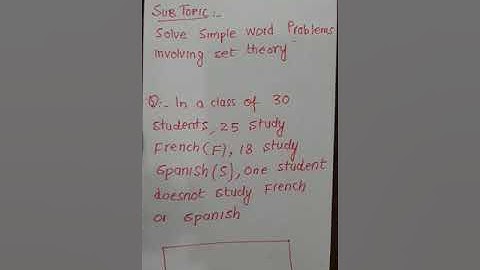 SUB TOPIC:-
Solve Simple Word Problems
involving set theory
Q:- In a class of 30
students, 25 study
French(F), 18 study
Spanish(S), one student
doesnot study French
or Spanish